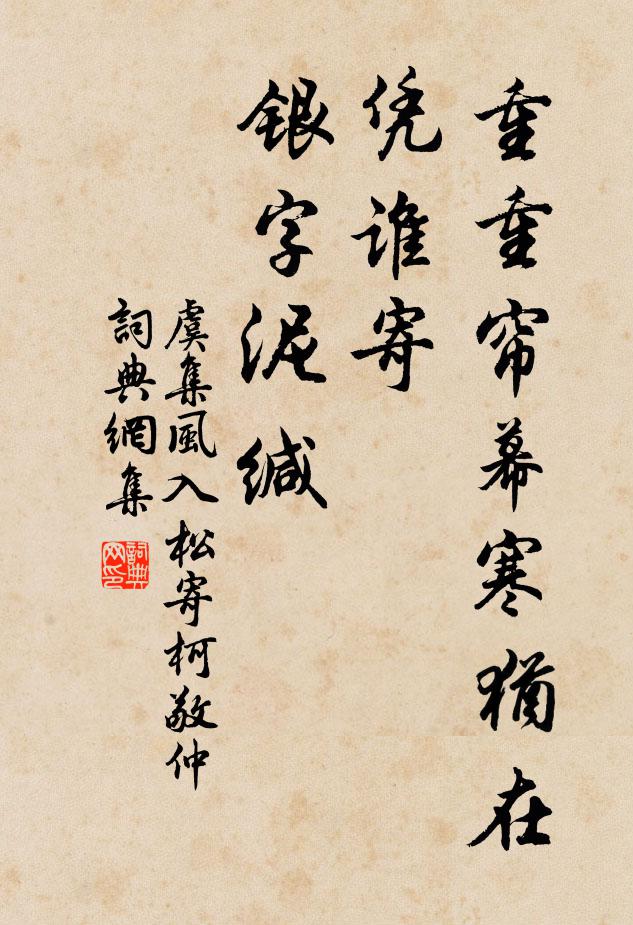 重重帘幕寒犹在
凭谁寄
银字泥缄
虞集風入松寄柯敬仲
詞典網集
詞典网印